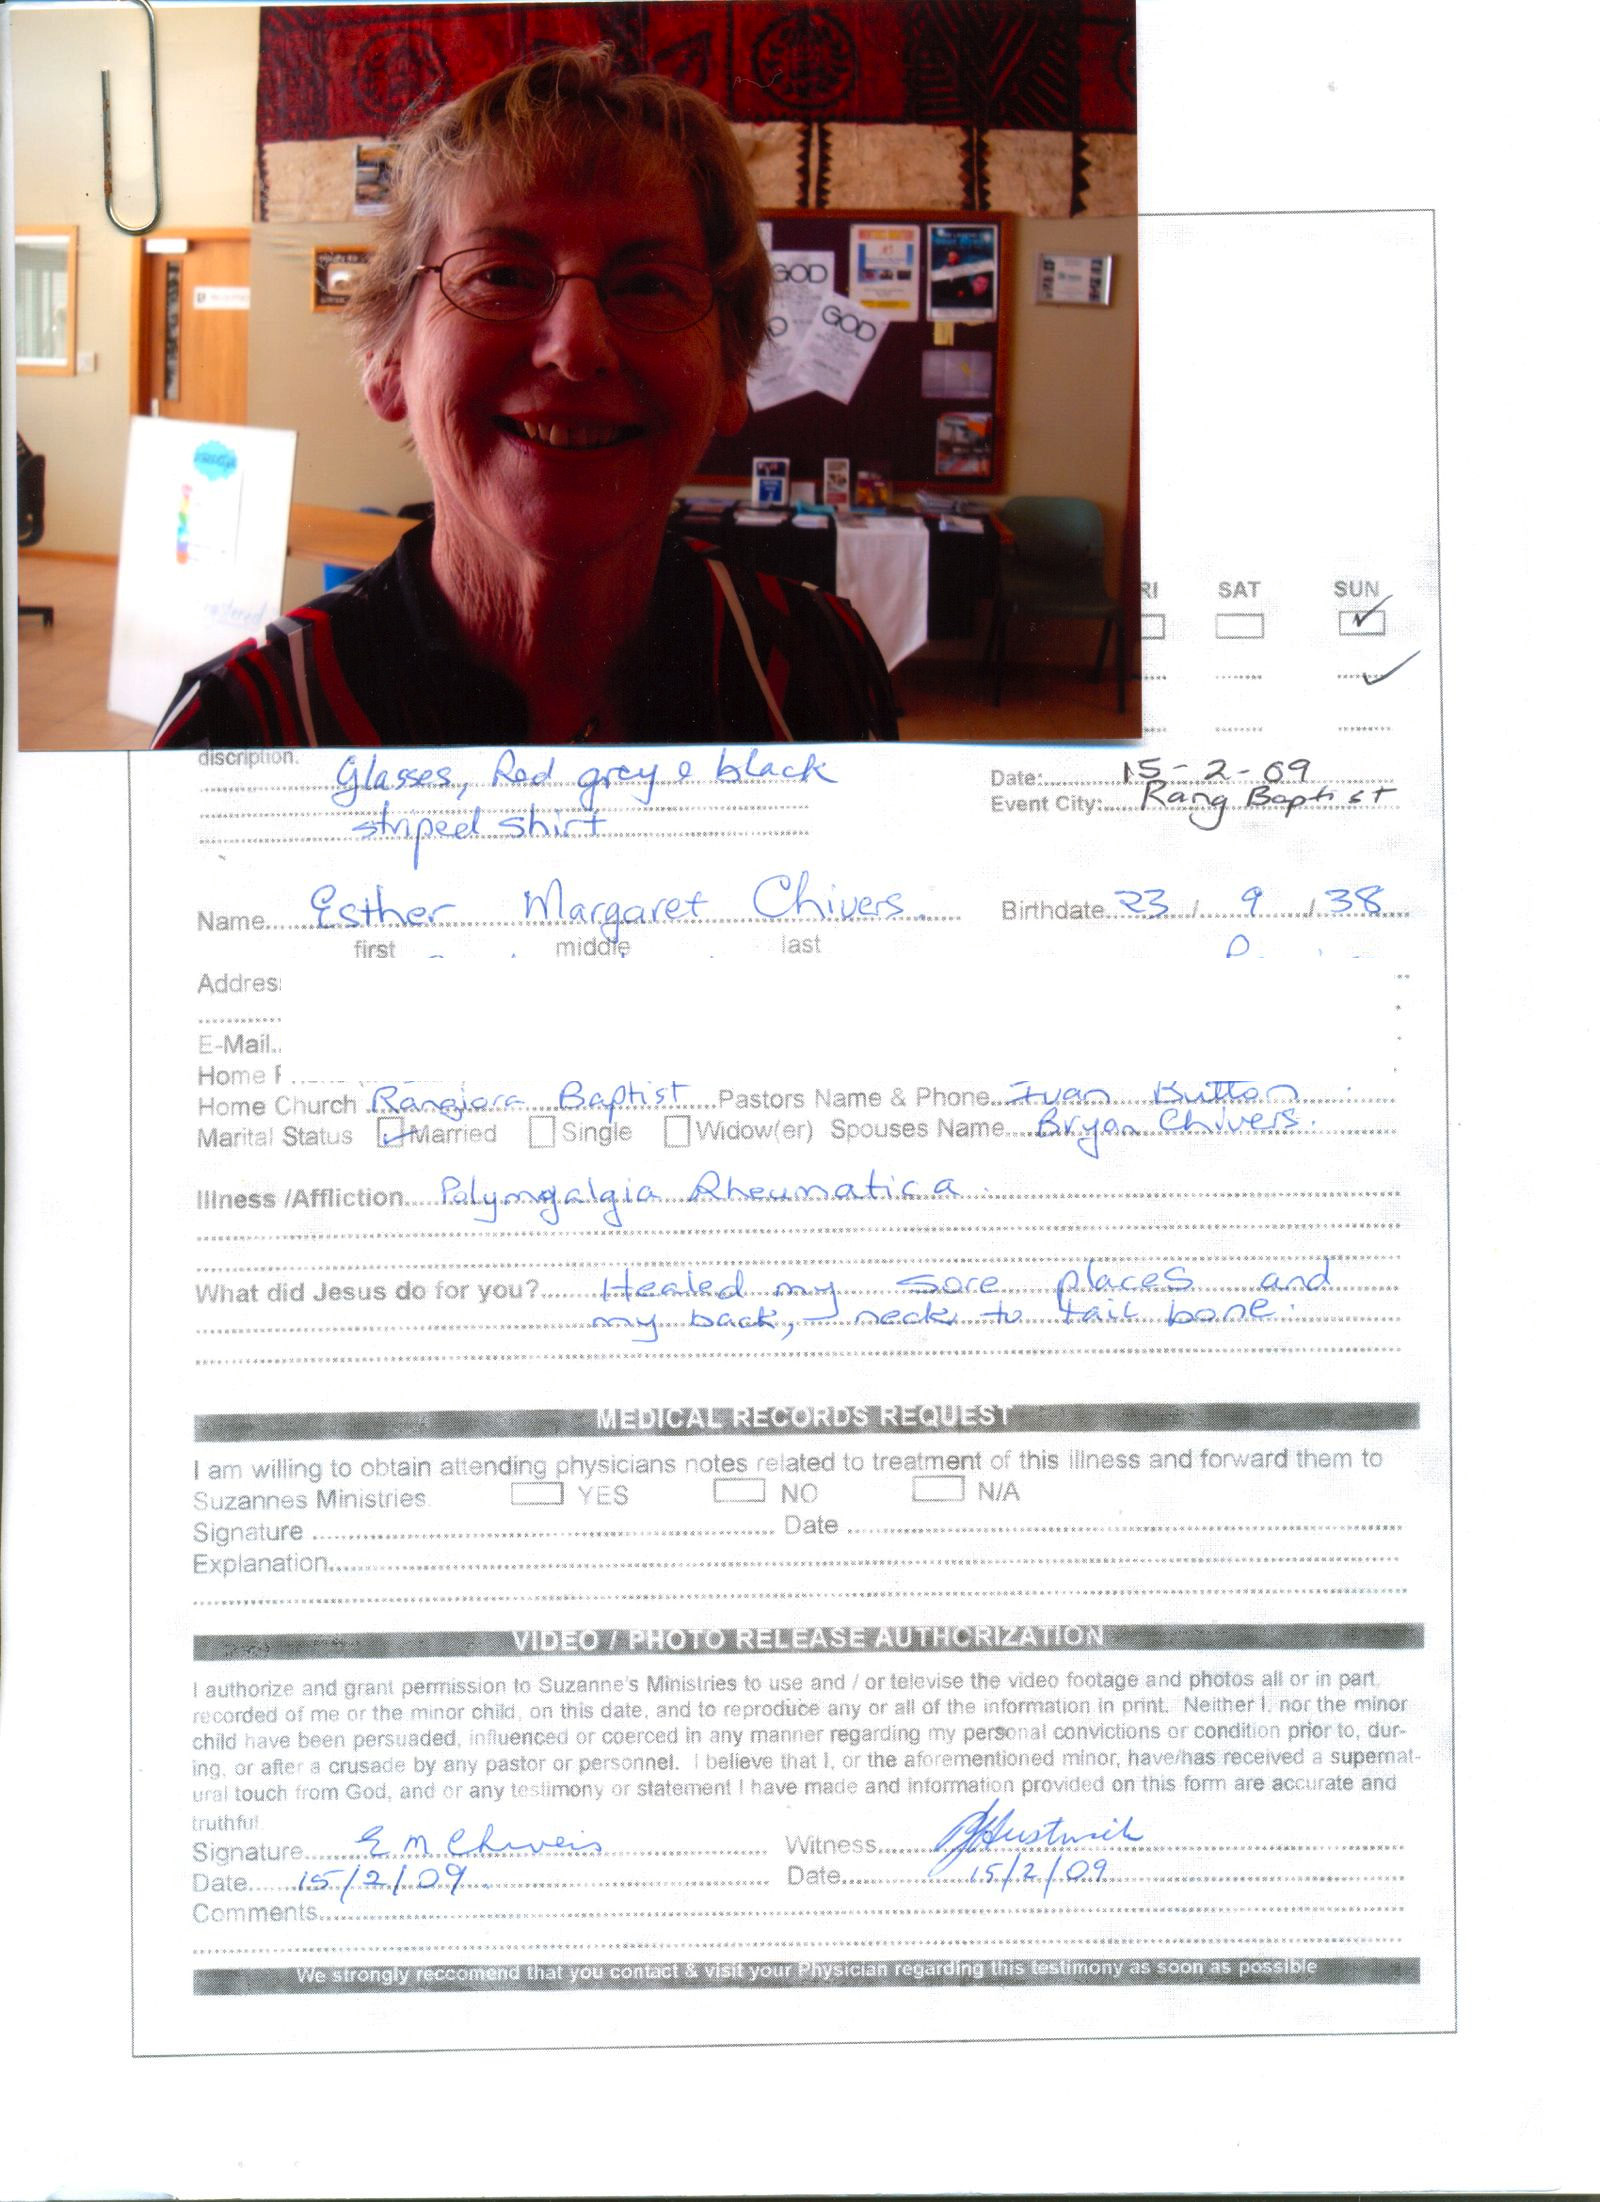 GOD
GOD
RI SAT SUN
discription. Glasses, Red grey & black
striped shirt
Date: 15-2-09
Event City: Rang Baptist
Name Esther Margaret Chivers. Birthdate 23 / 9 / 38
first middle last
Addres
E-Mail
Home
Home Church Rangiora Baptist Pastors Name & Phone Ivan Button
Marital Status Married Single Widow(er) Spouses Name Bryan Chivers.
Illness /Affliction Polymyalgia Rheumatica.
What did Jesus do for you? Healed my sore places and
my back, neck to tail bone.
MEDICAL RECORDS REQUEST
I am willing to obtain attending physicians notes related to treatment of this illness and forward them to
Suzannes Ministries. YES NO N/A
Signature Date
Explanation
VIDEO / PHOTO RELEASE AUTHORIZATION
I authorize and grant permission to Suzanne's Ministries to use and / or televise the video footage and photos all or in part,
recorded of me or the minor child, on this date, and to reproduce any or all of the information in print. Neither I, nor the minor
child have been persuaded, influenced or coerced in any manner regarding my personal convictions or condition prior to, dur-
ing, or after a crusade by any pastor or personnel. I believe that I, or the aforementioned minor, have/has received a supernat-
ural touch from God, and or any testimony or statement I have made and information provided on this form are accurate and
truthful.
Signature E M Chivers Witness
Date 15/2/09. Date 15/2/09
Comments
We strongly reccomend that you contact & visit your Physician regarding this testimony as soon as possible